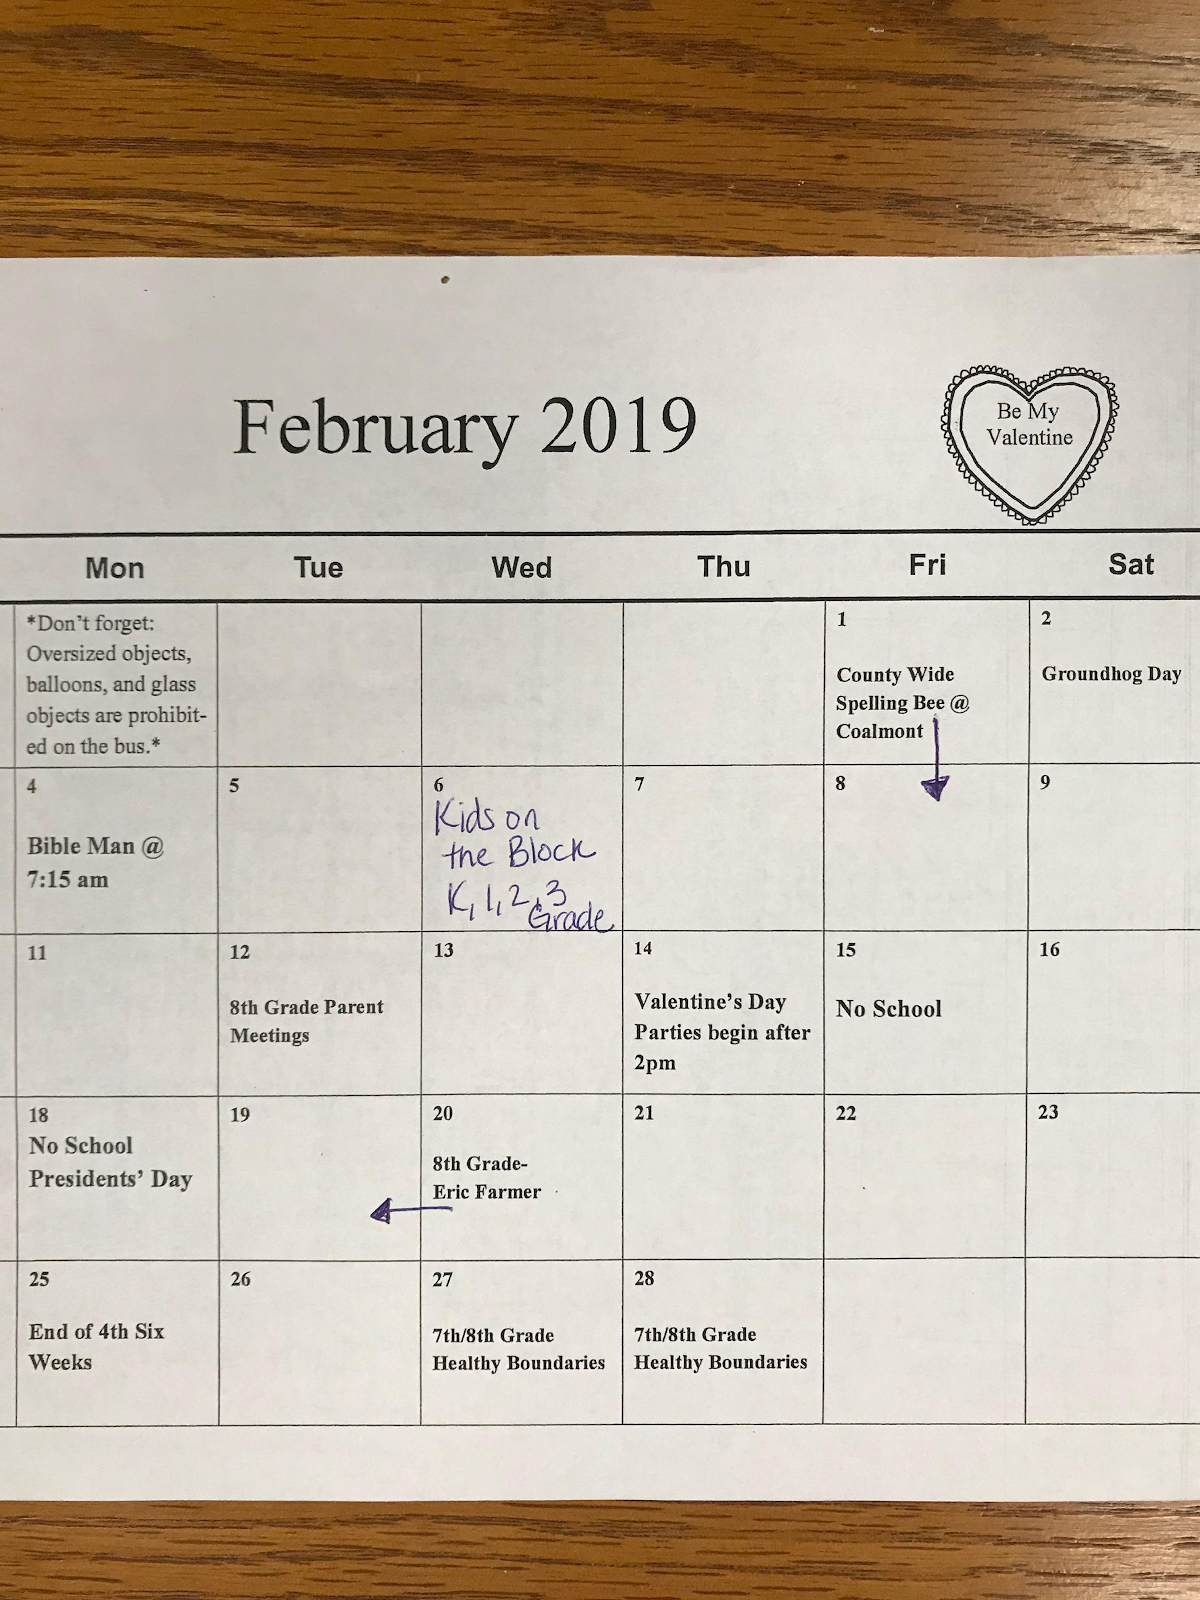 February 2019
Be My
Valentine
Mon Tue Wed Thu Fri Sat
*Don't forget:
Oversized objects,
balloons, and glass
objects are prohibit-
ed on the bus.*
1
County Wide
Spelling Bee @
Coalmont
2
Groundhog Day
4
Bible Man @
7:15 am
5
6
Kids on
the Block
K, 1, 2, 3
Grade
7
8
9
11
12
8th Grade Parent
Meetings
13
14
Valentine's Day
Parties begin after
2pm
15
No School
16
18
No School
Presidents' Day
19
20
8th Grade-
Eric Farmer
21
22
23
25
End of 4th Six
Weeks
26
27
7th/8th Grade
Healthy Boundaries
28
7th/8th Grade
Healthy Boundaries